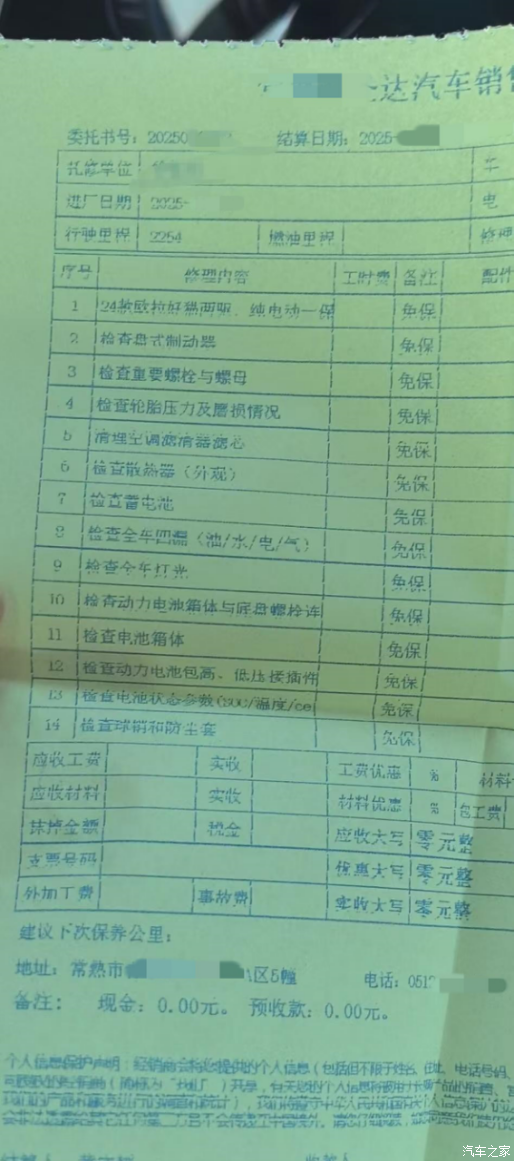 达汽车销售
委托书号：20250 结算日期：2025-
托修单位 车
进厂日期 2025- 电
行驶里程 2254 燃油里程 修理
序号 修理内容 工时费 备注 配件
1 24款欧拉好猫两驱、纯电动一保 免保
2 检查盘式制动器 免保
3 检查重要螺栓与螺母 免保
4 检查轮胎压力及磨损情况 免保
5 清理空调滤清器滤芯 免保
6 检查散热器（外观） 免保
7 检查蓄电池 免保
8 检查全车四漏（油/水/电/气） 免保
9 检查全车灯光 免保
10 检查动力电池箱体与底盘螺栓连 免保
11 检查电池箱体 免保
12 检查动力电池包高、低压接插件 免保
13 检查电池状态参数(SOC/温度/ce 免保
14 检查球销和防尘套 免保
应收工费 实收 工费优惠 % 材料
应收材料 实收 材料优惠 % 包工费
抹掉金额 税金 应收大写 零元整
支票号码 优惠大写 零元整
外加工费 事故费 实收大写 零元整
建议下次保养公里：
地址：常熟市 区5幢 电话：0512
备注： 现金：0.00元。 预收款：0.00元。
个人信息保护声明：经销商会将您提供的个人信息（包括但不限于姓名、住址、电话号码、
汽车之家